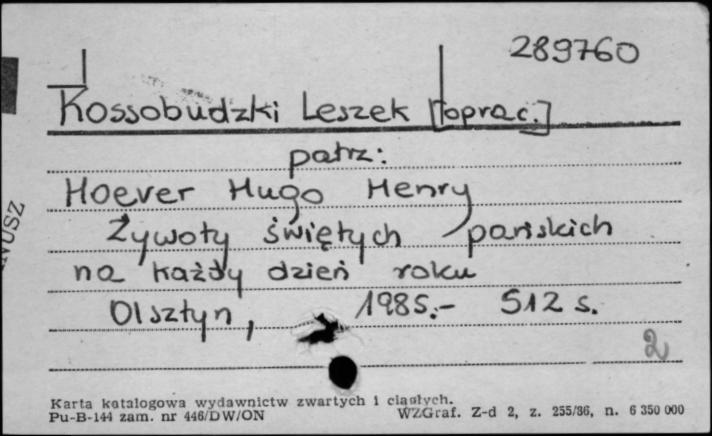 289760
Kossobudzki Leszek [oprac.]
patrz:
Hoever Hugo Henry
Żywoty świętych pańskich
na każdy dzień roku
Olsztyn, 1985.- 512 s.
2
Karta katalogowa wydawnictw zwartych i ciągłych.
Pu-B-144 zam. nr 446/DW/ON WZGraf. Z-d 2, z. 255/86, n. 6 350 000